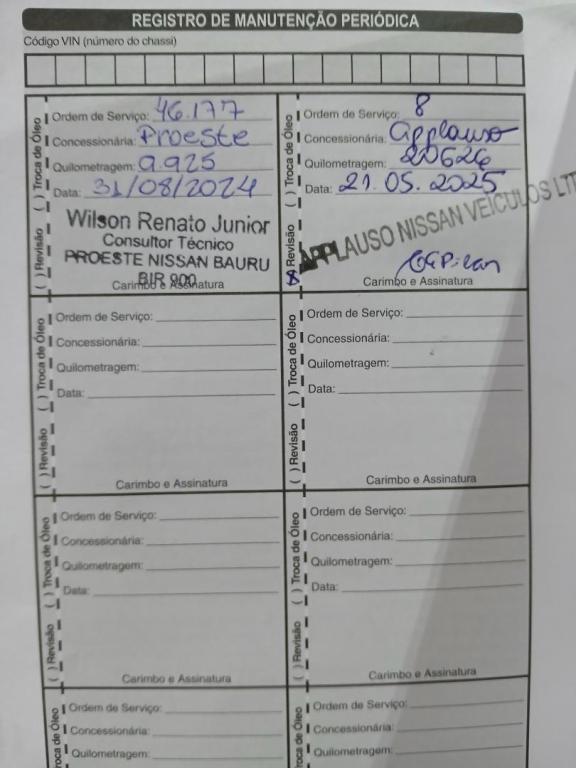 REGISTRO DE MANUTENÇÃO PERIÓDICA
Código VIN (número do chassi)
( ) Revisão ( ) Troca de Óleo
Ordem de Serviço: 46.177
Concessionária: Proeste
Quilometragem: 9.925
Data: 31/08/2024
Wilson Renato Junior
Consultor Técnico
PROESTE NISSAN BAURU
BIR 900
Carimbo e Assinatura
(X) Revisão ( ) Troca de Óleo
Ordem de Serviço: 8
Concessionária: Applauso
Quilometragem: 20626
Data: 21.05.2025
APPLAUSO NISSAN VEÍCULOS LT
Carimbo e Assinatura
( ) Revisão ( ) Troca de Óleo
Ordem de Serviço:
Concessionária:
Quilometragem:
Data:
Carimbo e Assinatura
( ) Revisão ( ) Troca de Óleo
Ordem de Serviço:
Concessionária:
Quilometragem:
Data:
Carimbo e Assinatura
( ) Revisão ( ) Troca de Óleo
Ordem de Serviço:
Concessionária:
Quilometragem:
Data:
Carimbo e Assinatura
( ) Revisão ( ) Troca de Óleo
Ordem de Serviço:
Concessionária:
Quilometragem:
Data:
Carimbo e Assinatura
roca de Óleo
Ordem de Serviço:
Concessionária:
Quilometragem:
roca de Óleo
Ordem de Serviço:
Concessionária:
Quilometragem: